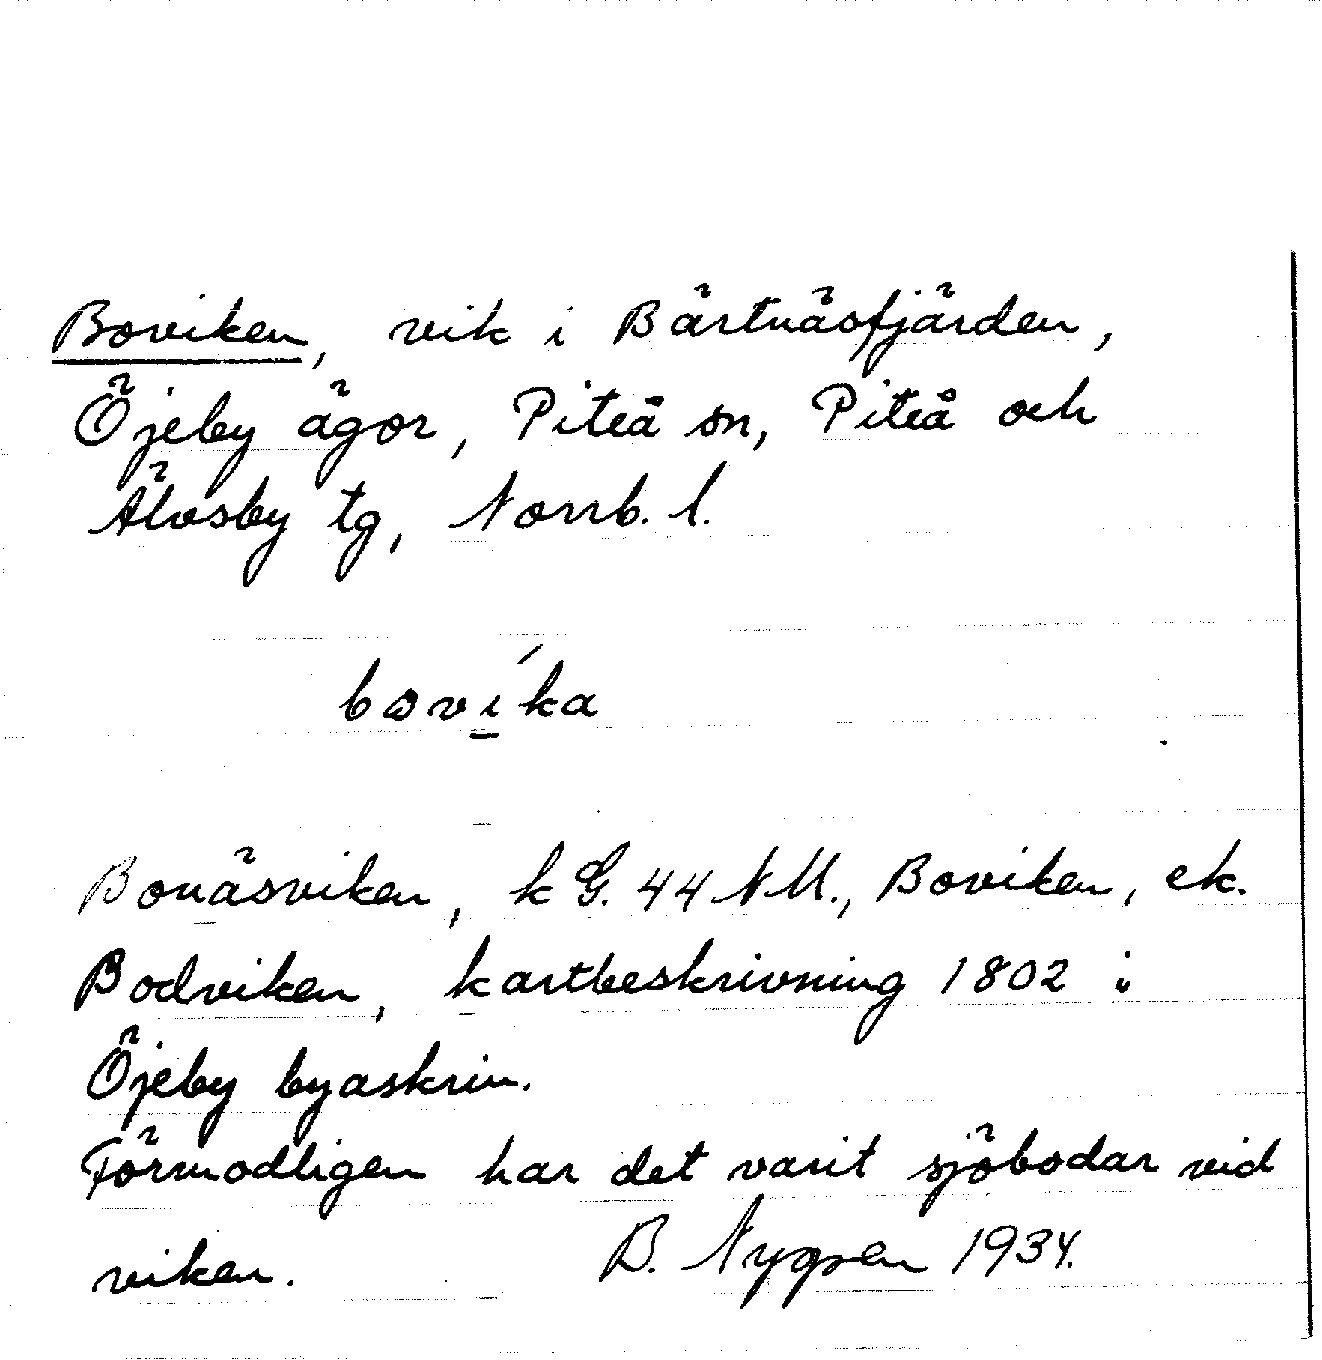 Boviken, vik i Bärtnäsfjärden,
Öjeby ägor, Piteå sn, Piteå och
Älvsby tg, Norrb. l.
bovíka
Bonäsviken, k G. 44 NM., Boviken, ek.
Bodviken, kartbeskrivning 1802 i
Öjeby byaskrin.
Förmodligen har det varit sjöbodar vid
viken. B. Nygren 1934.